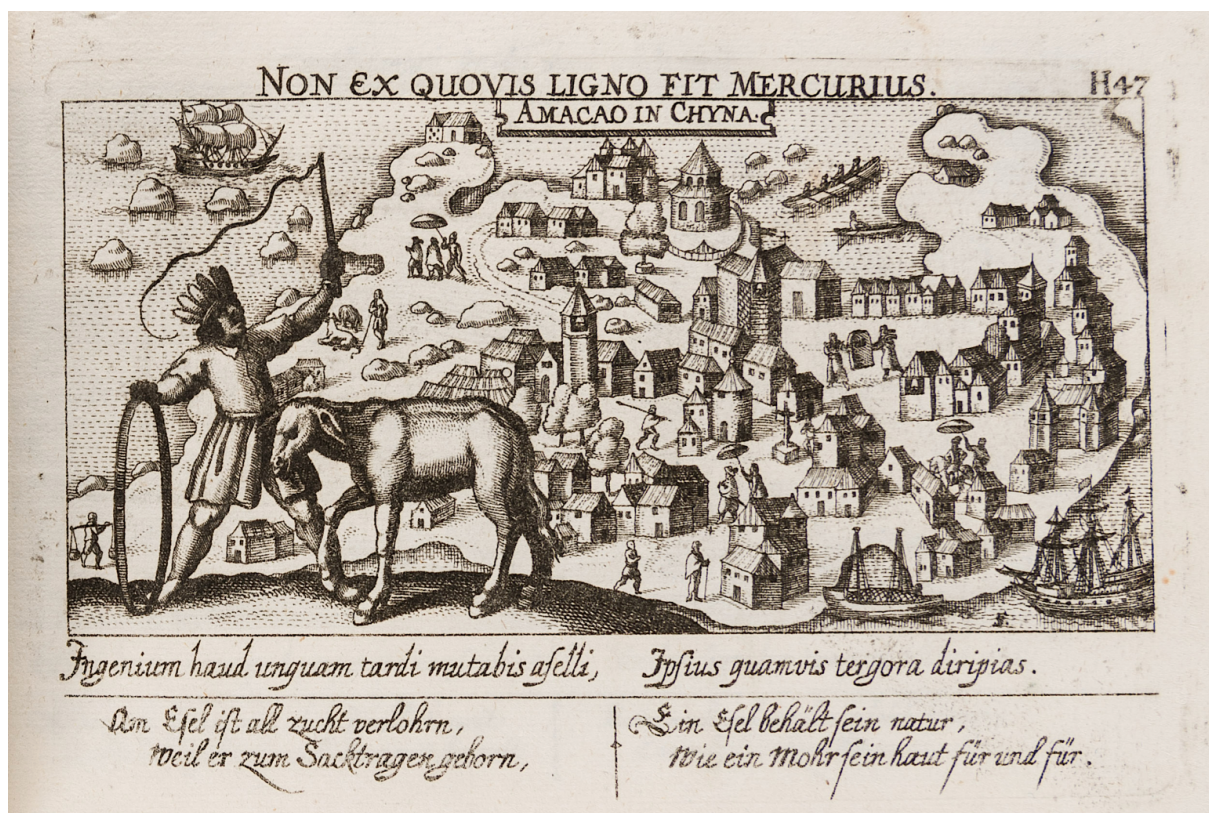 NON EX QUOVIS LIGNO FIT MERCURIUS.
H47
AMACAO IN CHYNA.
Ingenium haud unquam tardi mutabis aſelli, Ipſius quamvis tergora diripias.
Am Eſel iſt all zucht verlohrn,
Weil er zum Sacktragen geborn,
Ein Eſel behält ſein natur,
Wie ein Mohr ſein haut für und für.